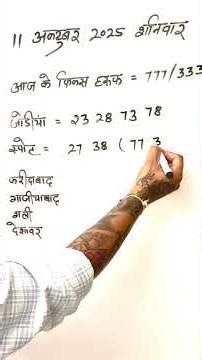 11 अक्टूबर 2025 शनिवार
आज के फिक्स हरूफ = 777/333
जोडीयां = 23 28 73 78
स्पोट = 27 38 ( 77 3
फरीदाबाद
गाजीयाबाद
गली
देशावर